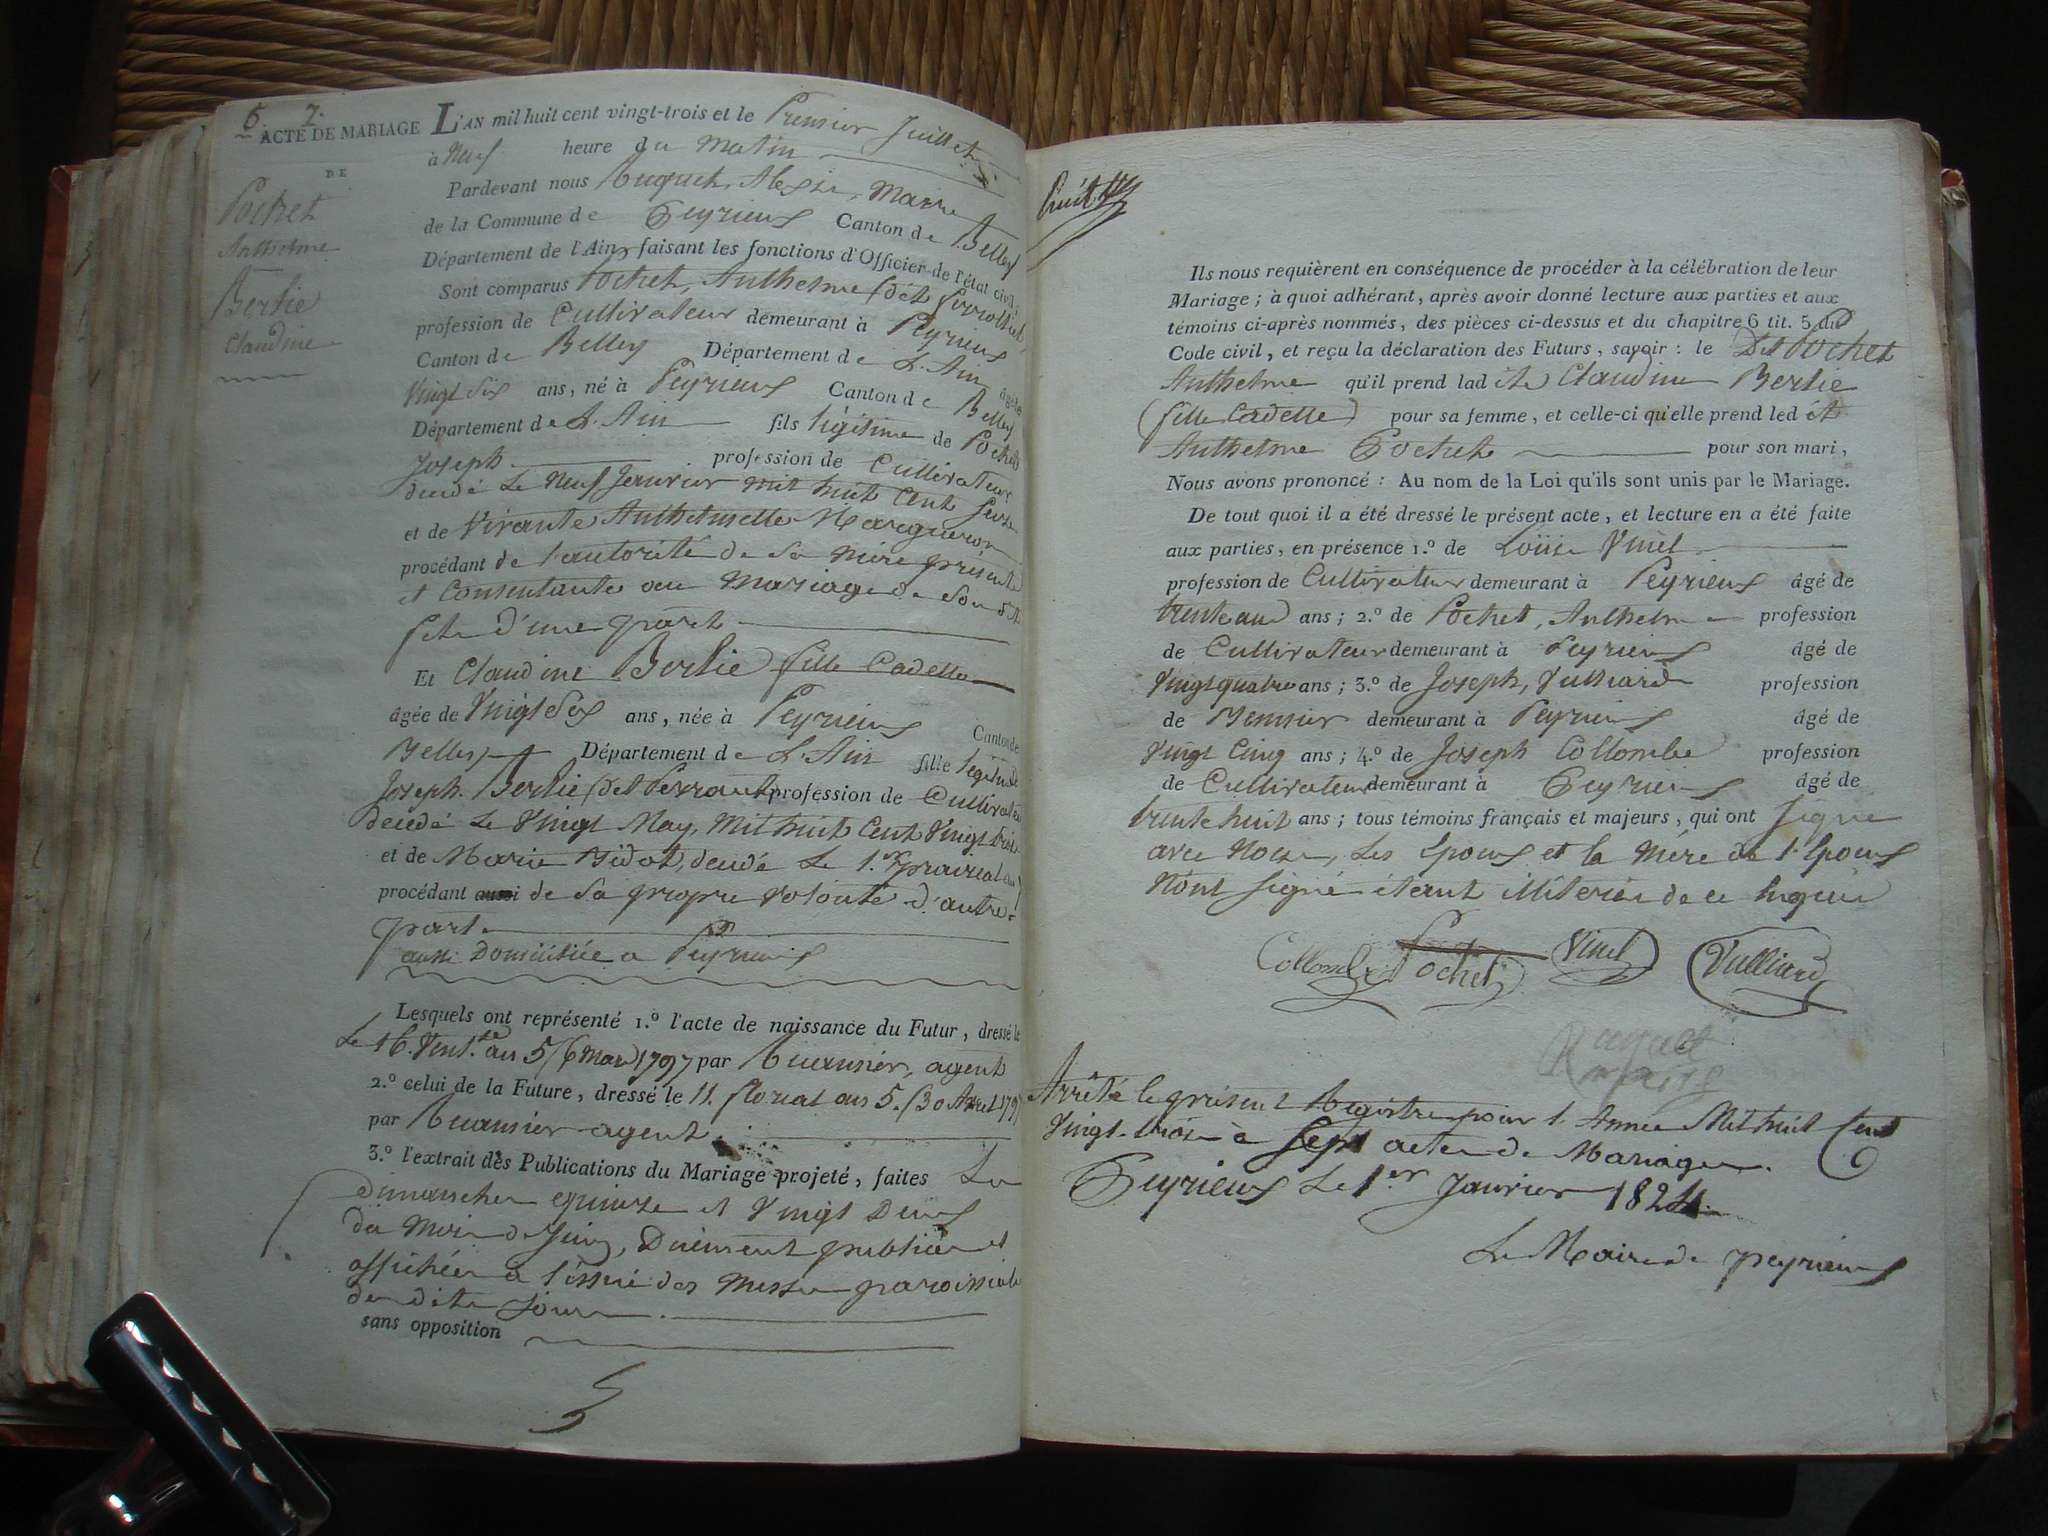 6. 7.
ACTE DE MARIAGE
DE
Pochet
Anthelme
Bertie
Claudine
L'AN mil huit cent vingt-trois et le Premier Juillet
à Neuf heure du Matin
Pardevant nous Alexis, Maire
de la Commune de Peyrieux Canton de Belley
Département de l'Ain faisant les fonctions d'Officier de l'état civil,
Sont comparus Pochet, Anthelme (dit
profession de Cultivateur demeurant à Peyrieux
Canton de Belley Département de L'Ain âgé de
Vingt Six ans, né à Peyrieux Canton de Belley
Département de L'Ain fils légitime de Pochet
Joseph profession de Cultivateur
décédé Le Neuf Janvier mil huit Cent
et de Vivante Anthelmette
procédant de l'autorité de Sa mère présente
et Consentante au Mariage de Son dit
fils d'une part
Et Claudine Bertie fille Cadette
âgée de Vingt Six ans, née à Peyrieux Canton de
Belley Département de L'Ain fille légitime de
Joseph Bertie (dit Perraut profession de Cultivateur
décédé Le Vingt May, Mil huit Cent Vingt trois
et de Marie décédé Le 1.er prairial an
procédant aussi de Sa propre volonté d'autre
part
aussi Domiciliée a Peyrieux
Lesquels ont représenté 1.º l'acte de naissance du Futur, dressé le
Le 16. Vent.se an 5 (6 Mars 1797 par agent
2.º celui de la Future, dressé le 11. floréal an 5. (30 Avril 1797
par agent
3.º l'extrait des Publications du Mariage projeté, faites Les
dimanches quinze et Vingt Deux
du Mois de Juin, Dûement publiées et
affichées a l'issue des Messes paroissiale
des dits Jours
sans opposition
Ils nous requièrent en conséquence de procéder à la célébration de leur
Mariage; à quoi adhérant, après avoir donné lecture aux parties et aux
témoins ci-après nommés, des pièces ci-dessus et du chapitre 6 tit. 5 du
Code civil, et reçu la déclaration des Futurs, savoir: le Dit Pochet
Anthelme qu'il prend ladite Claudine Bertie
(fille Cadette) pour sa femme, et celle-ci qu'elle prend ledit
Anthelme Pochet pour son mari,
Nous avons prononcé: Au nom de la Loi qu'ils sont unis par le Mariage.
De tout quoi il a été dressé le présent acte, et lecture en a été faite
aux parties, en présence 1.º de Louis Vinet
profession de Cultivateur demeurant à Peyrieux âgé de
ans; 2.º de Pochet, Anthelme profession
de Cultivateur demeurant à Peyrieux âgé de
Vingt quatre ans; 3.º de Joseph, Vulliard profession
de demeurant à Peyrieux âgé de
Vingt Cinq ans; 4.º de Joseph Collombe profession
de Cultivateur demeurant à Peyrieux âgé de
trente huit ans; tous témoins français et majeurs, qui ont Signé
avec Nous, Les Epoux et la Mère de l'Epoux
N'ont Signé étant illiterés de ce
Collombe Pochet Vinet Vulliard
Maire
Arrêté le présent Registre pour l'Année Mil huit Cent
Vingt-trois à Sept actes de Mariages.
Peyrieux Le 1er Janvier 1824
Le Maire de Peyrieux